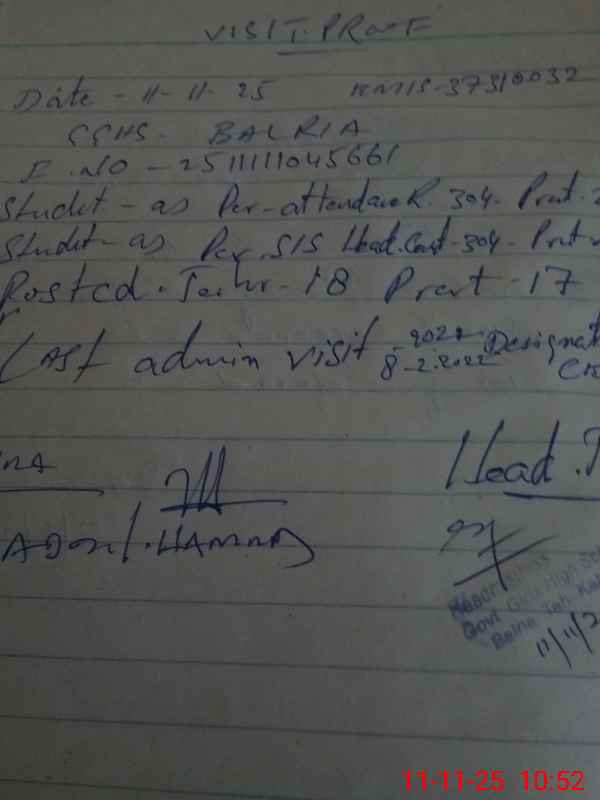 VISIT. PROOF
Date - 11-11-25 EMIS-37310032
GGHS- BALRIA
E.NO - 2511111045661
Studet - as Per-attendance R. 304- Prent.
Studet - as Per SIS Head.Cout-304- Prent
Posted. Techr. - 18 Prent - 17
Last admin visit 8-2.2022 Designat
MA
Head.T
HAMMAD
Govt Girls High Sch
11/11/2
11-11-25 10:52